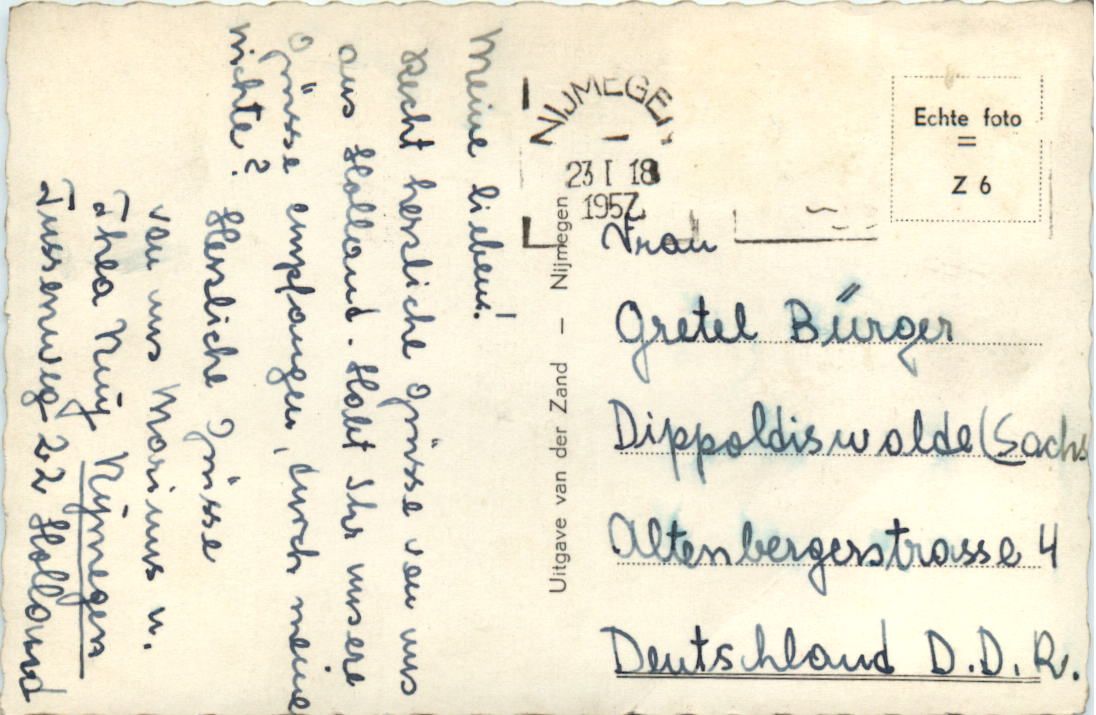 Meine lieben!
Recht herzliche Grüsse von uns
aus Holland. Habt Ihr unsere
Grüsse empfangen, durch meine
nichte? Herzliche Grüsse
von uns Marinus u.
Thea Nijmegen
22 Holland
NIJMEGEN
23 I 18
1957
Echte foto
=
Z 6
Uitgave van der Zand — Nijmegen
Frau
Gretel Bürger
Dippoldiswalde (Sachs
Altenbergerstrasse 4
Deutschland D.D.R.